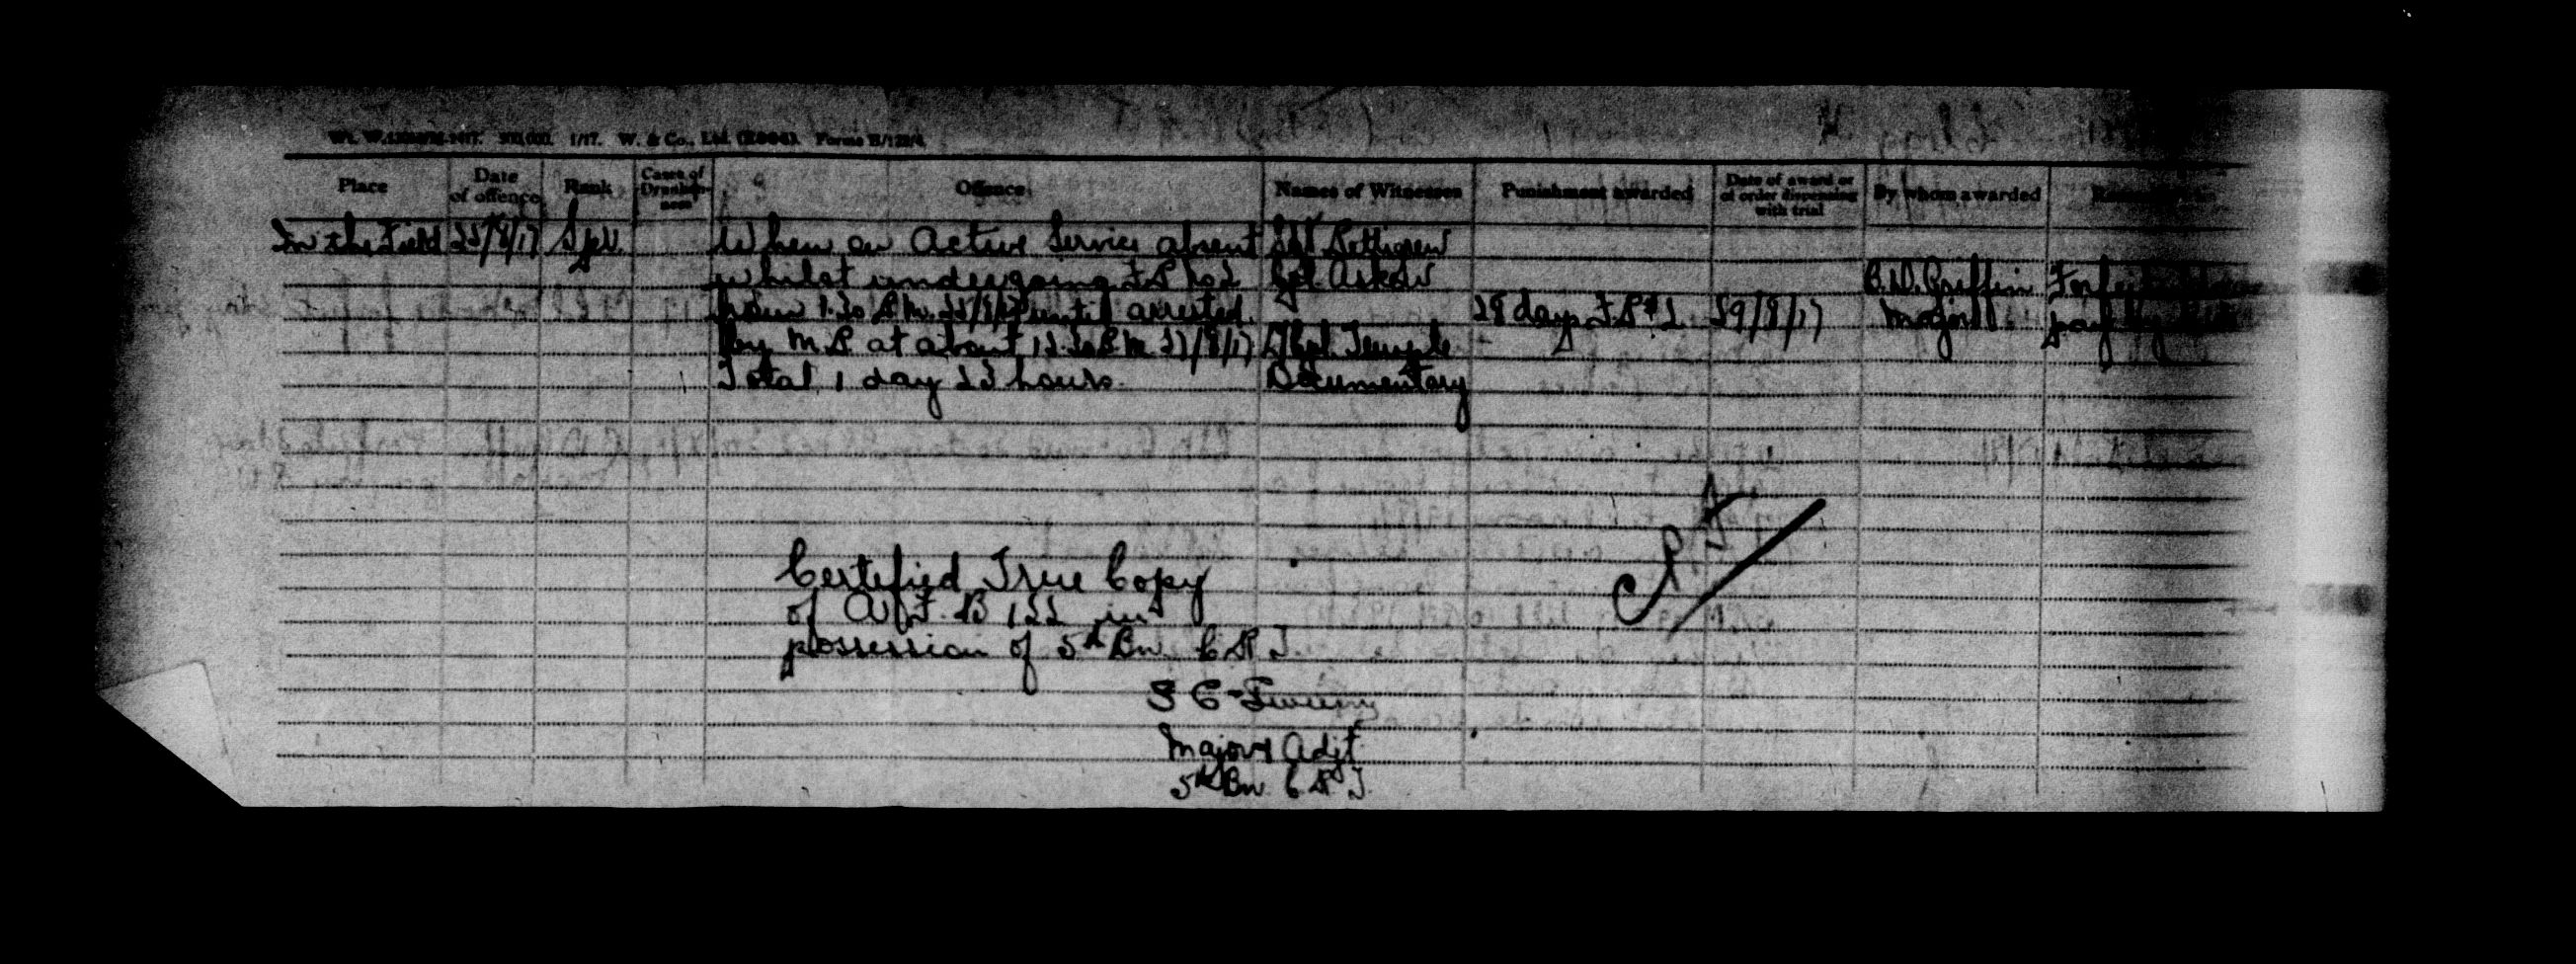 1/17. W. & Co., Ltd. Forms B/122/4
Place Date of offence Rank Cases of Drunkenness Offence Names of Witnesses Punishment awarded Date of award or of order dispensing with trial By whom awarded
In the Field 25/8/17 Spr. When on Active Service absent Sgt Pettigrew
whilst undergoing F.P. No 2 Cpl. Askew Griffin
from 1.30 P.M. 25/8/17 until arrested 28 days F.P. # 2 29/8/17 Major
by M.P. at about 12.30 P.M. 27/8/17 Temple
Total 1 day 23 hours. Documentary
Certified True Copy
of A.F. B 122 in
possession of 5th Bn. C.R.T.
Major & Adjt.
5th Bn C.R.T.